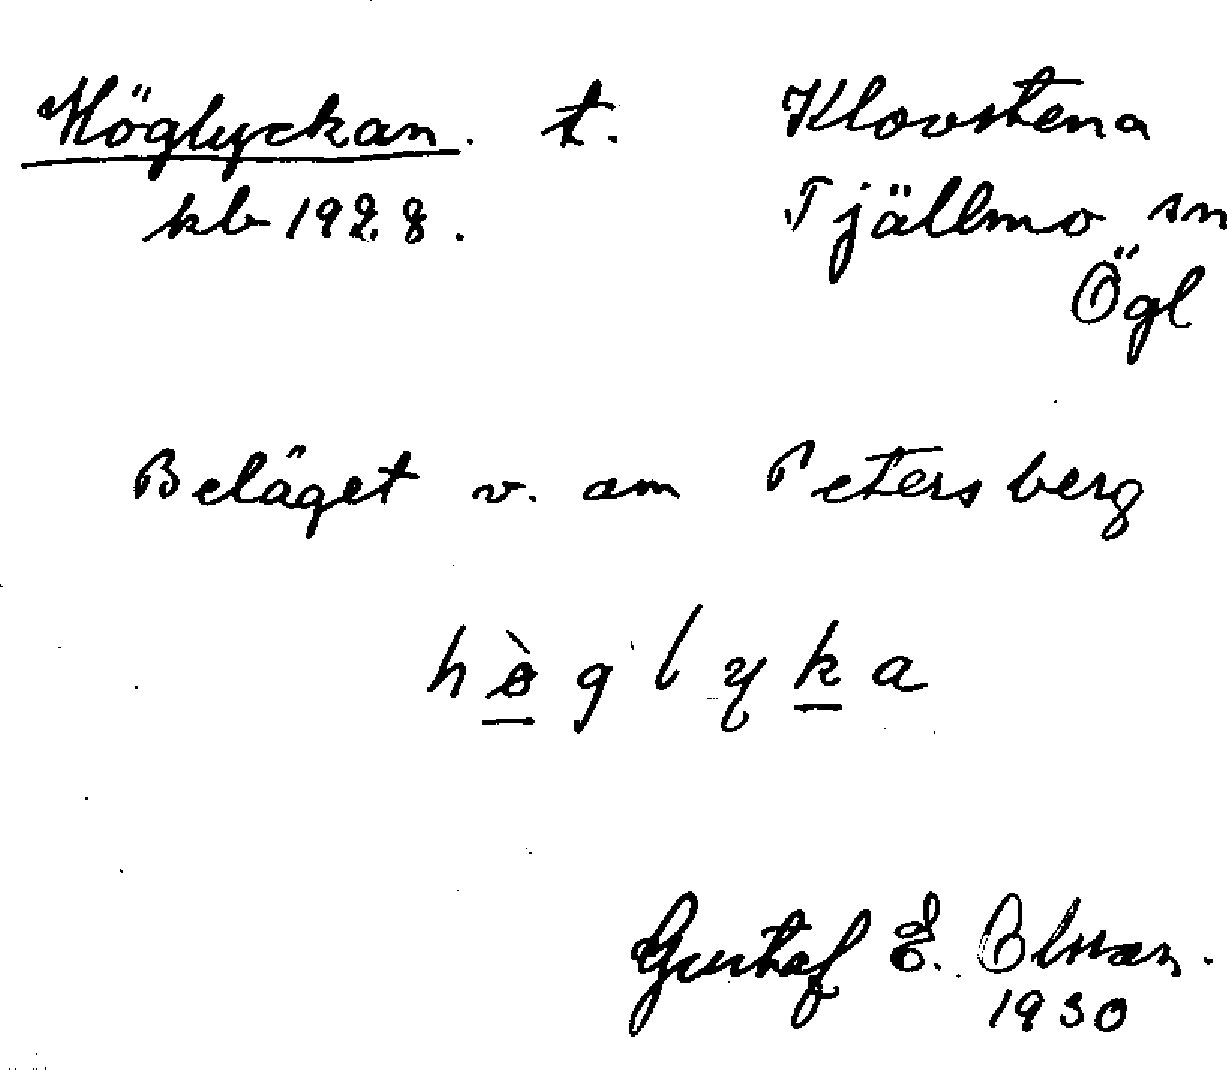 Höglyckan. t. Klovstena
kb 1928. Tjällmo sn
Ögl
Beläget v. om Petersberg
hø̀glyka
Gustaf E. Olsson.
1930